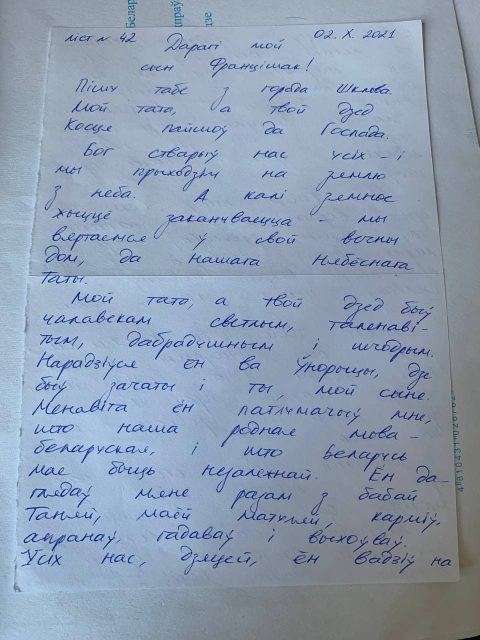 ліст № 42 02. X. 2021
Дарагі мой
сын Францішак!
Пішу табе з горада Шклова.
Мой тата, а твой дзед
Косця пайшоў да Госпада.
Бог стварыў нас усіх - і
мы прыходзім на зямлю
з неба. А калі зямное
жыццё заканчваецца - мы
вяртаемся ў свой вечны
дом, да нашага Нябеснага
Таты.
Мой тата, а твой дзед быў
чалавекам светлым, таленаві-
тым, дабрадушным і шчодрым.
Нарадзіўся ён ва Ўнорыцы, дзе
быў зачаты і ты, мой сыне.
Менавіта ён патлумачыў мне,
што наша родная мова -
беларуская, і што Беларусь
мае быць незалежнай. Ён да-
глядаў мяне разам з бабай
Таняй, маёй матуляй, карміў,
апранаў, гадаваў і выхоўваў.
Усіх нас, дзяцей, ён вадзіў на
Белар